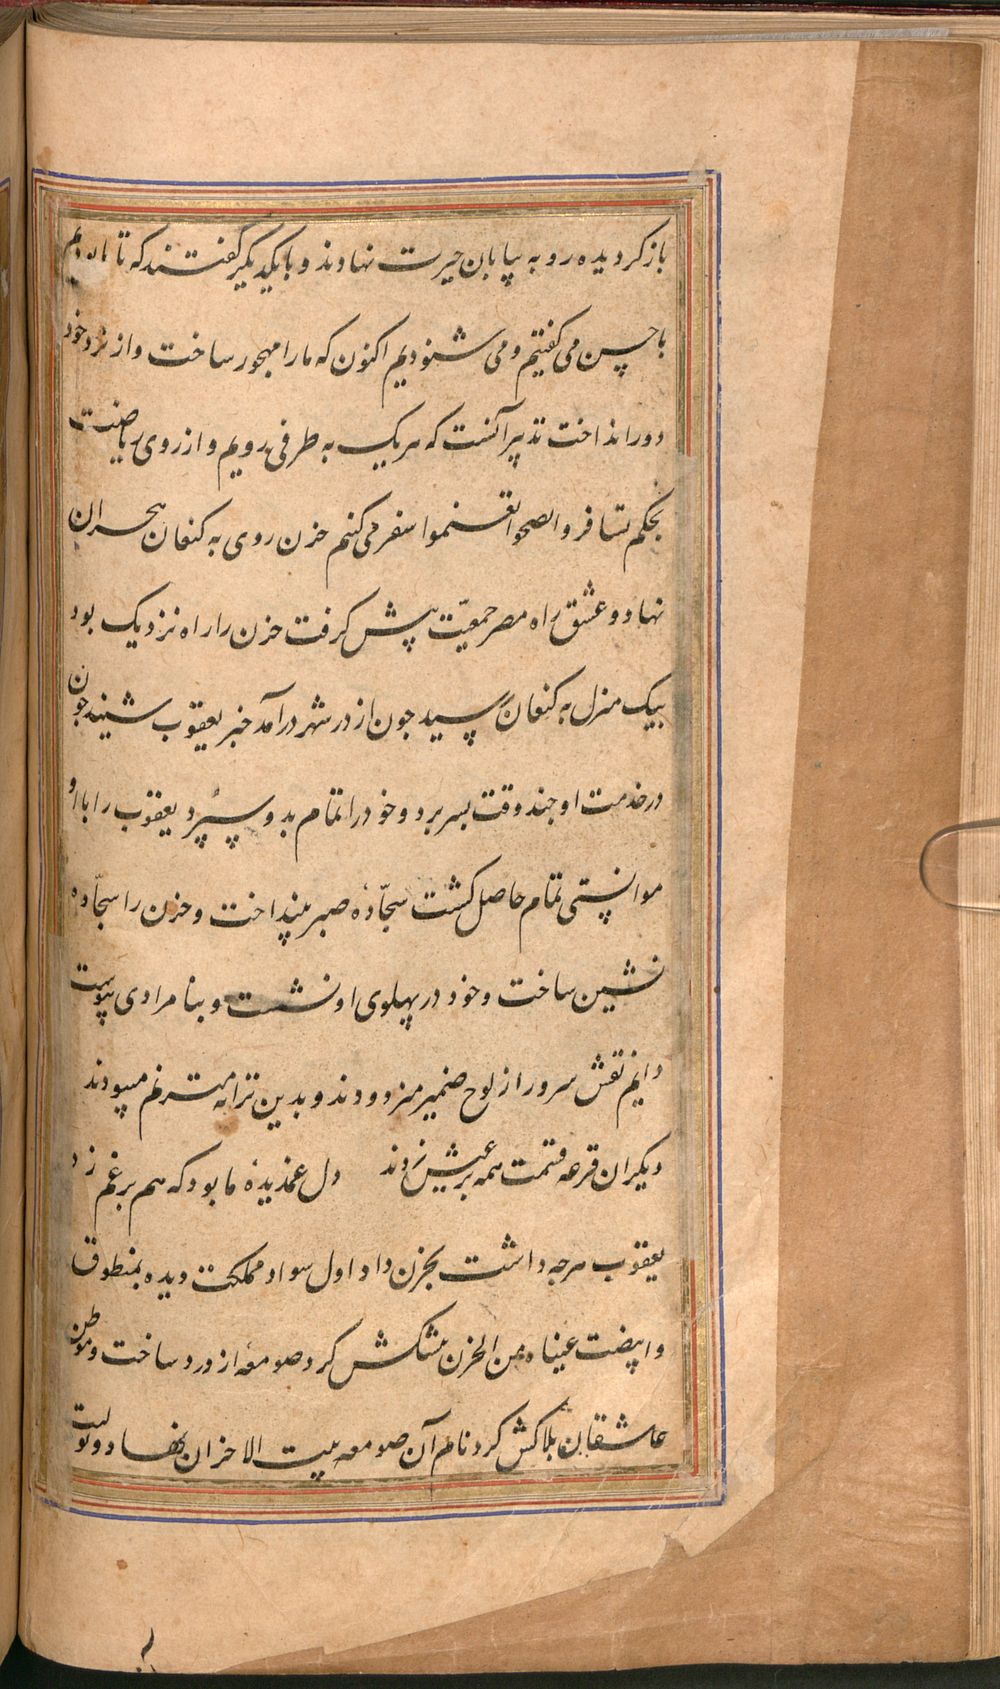 باز کردیده رو به بیابان حیرت نهادند و با یکدیگر گفتند که تا
با حسن می کفتیم و می شنودیم اکنون که ما را مهجور ساخت و از نزد خود
دور انداخت تدبیر آنست که هریک به طرفی رویم و از روی ریاضت
بحکم تسافروا تصحوا تغنموا سفر می کنیم حزن روی به کنعان هجران
نهاد و عشق راه مصر جمعیّت پیش کرفت حزن را راه نزدیک بود
بیک منزل به کنعان رسید جون از در شهر درآمد خبر یعقوب شنید جون
در خدمت او جند وقت بسر برد و خود را تمام بدو سپُرد یعقوب را با او
موانستی تمام حاصل کشت سجّادهٔ صبر بینداخت و حزن را سجّاده
نشین ساخت و خود در پهلوی او نشست و بنامرادی پیوست
دایم نقش سرور از لوح ضمیر میزدودند و بدین ترانه مترنم میبودند
دیکران قرعه قسمت همه بر عیش زدند دل غمدیدهٔ ما بود که هم بر غم زد
یعقوب هرجه داشت بحزن داد اول سواد مملکت دیده بمنطوق
وابیضت عیناه من الحزن پیشکش کرد صومعه از درد ساخت و موطن
عاشقان بلاکش کرد نام آن صومعه بیت الاحزان نهاد و تولیت